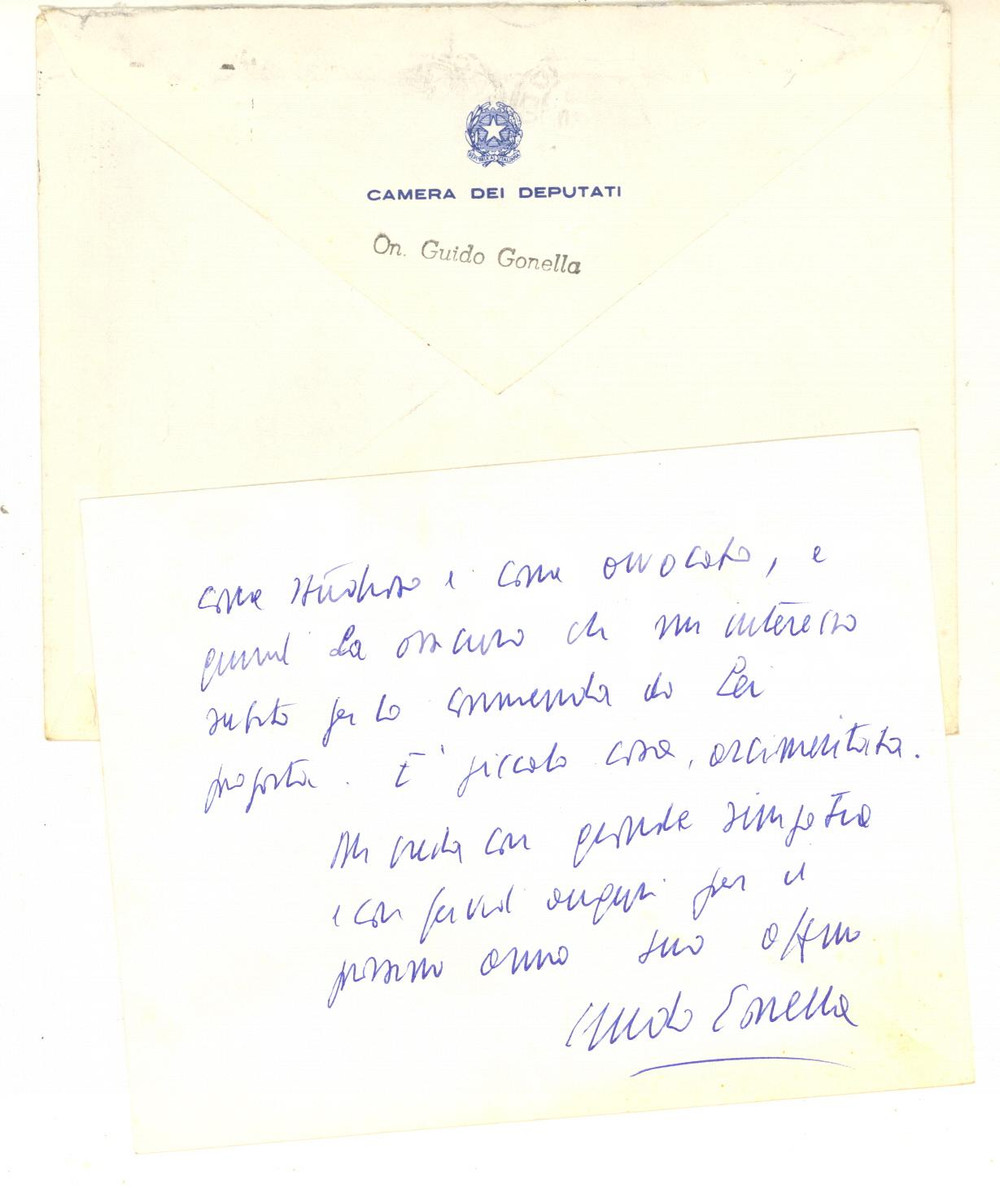 CAMERA DEI DEPUTATI
On. Guido Gonella
come studioso e come avvocato, e
quindi La assicuro che mi interesso
subito per la commenda da Lei
proposta. E' piccola cosa, arcimeritata.
Mi creda con grande simpatia
e con fervidi auguri per il
prossimo anno suo aff.mo
Guido Gonella